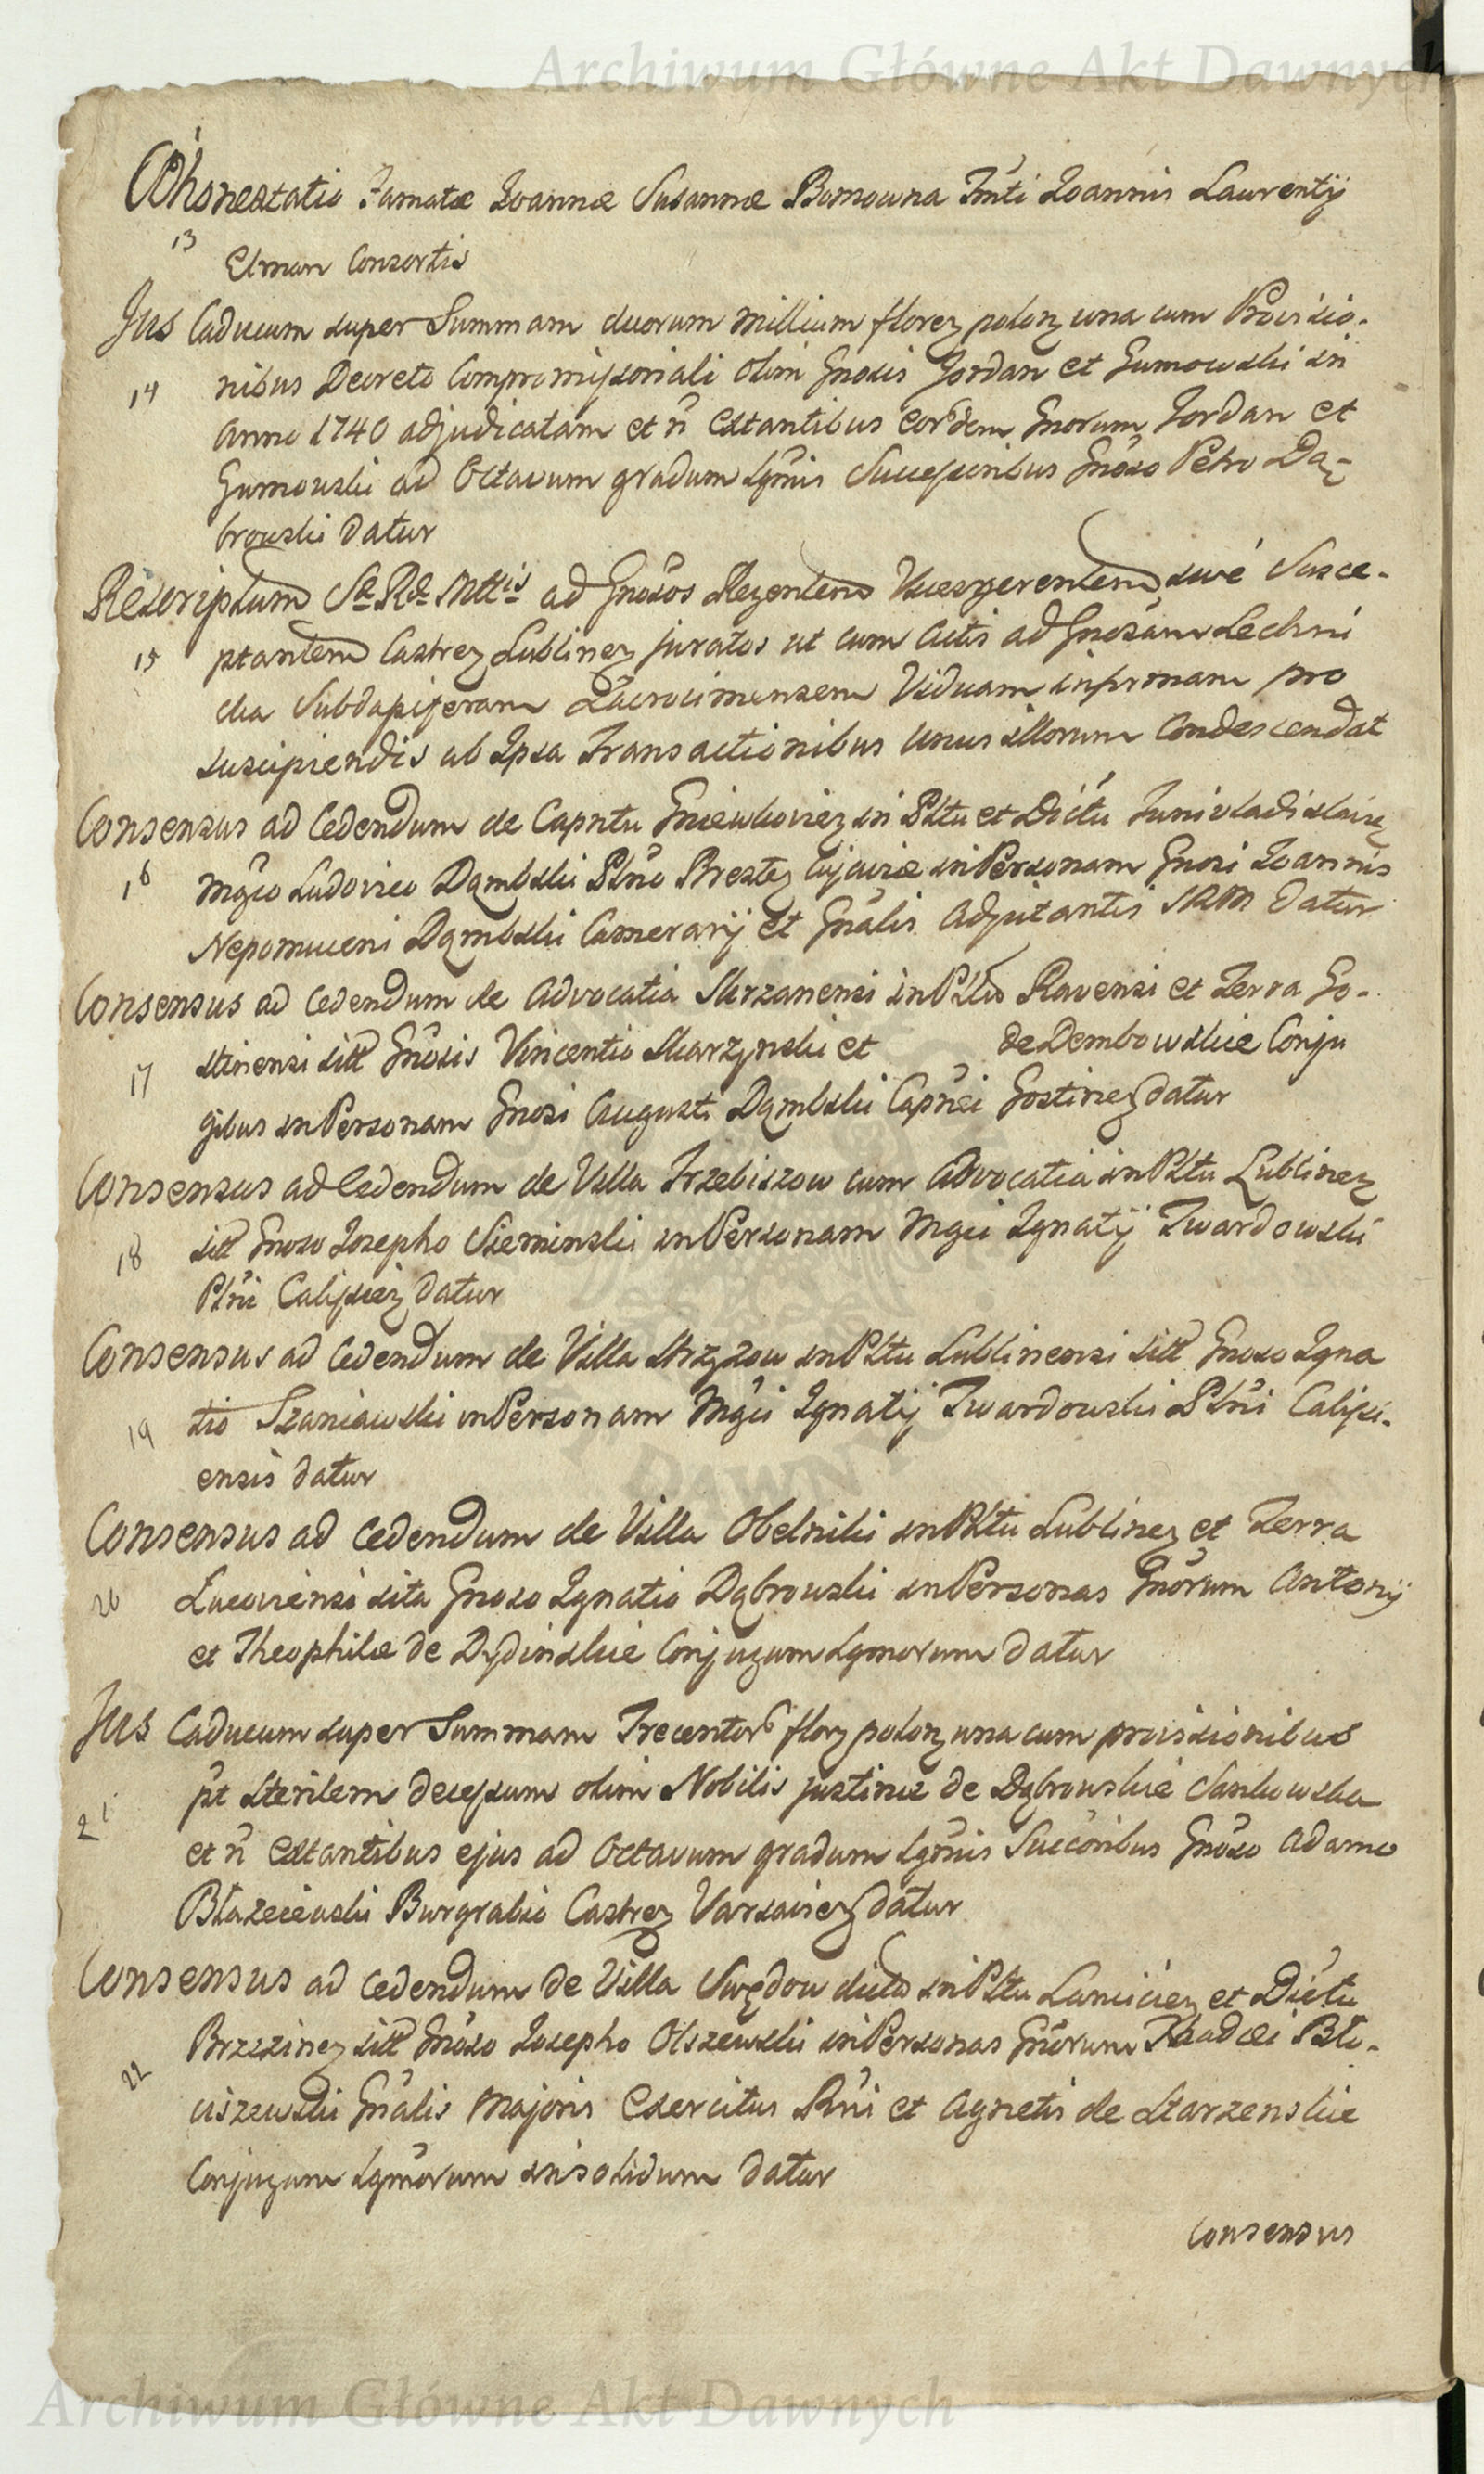 Archiwum Główne Akt Dawnych
Cohonestatio Famatæ Joannæ Susannæ Bomowna Fmti Joannis Laurentij
13 Elman Consortis
Jus Caducum super Summam duorum millium florez polonz una cum Provisio-
14 nibus Decreto Compromissoriali olim Gnosis Jordan et Gumowski in
Anno 1740 adjudicatam et ñ extantibus eordem Gnorum Jordan et
Gumowski ad Octavum gradum Lgmis Successoribus Gnoso Petro Dą-
browski datur
Rescriptum Sæ Ræ Mttis ad Gnosos Regentem Vicesgerentem sivé Susce-
15 ptantem Castrez Lublinez juratos ut cum Actis ad Gnosam Lechni
cka Subdapiferam Zacrocimensem Viduam infirmam pro
suscipiendis ab Ipsa Transactionibus unus illorum Condescendat
Consensus ad Cedendum de Capntu Gniewkoviez in Pltu et Dictu Junivladislaviez
16 Mgco Ludovico Dąmbski Plno Brestez Cujaviæ in Personam Gnosi Joannis
Nepomuceni Dąmbski Camerarij et Gnalis Adjutantis SRM datur
Consensus ad cedendum de Advocatia Skrzanensi in Pltu Ravensi et Terra Go-
17 stinensi sitt Gnosis Vincentio Skarzynski et de Dembowskie Conju
gibus in Personam Gnosi Augusti Dąmbski Capnei Gostinez datur
Consensus ad Cedendum de Villa Trzebiszow cum Advocatia in Pltu Lublinez
18 sitt Gnoso Josepho Sieminski in Personam Mgci Ignatij Twardowski
Plni Calissiez datur
Consensus ad Cedendum de Villa Strzyzow in Pltu Lublinensi sitt Gnoso Igna
19 tio Szaniawski in Personam Mgci Ignatij Twardowski Plni Calissi-
ensis datur
Consensus ad cedendum de Villa Obelniki in Pltu Lublinez et Terra
20 Lucoviensi sita Gnoso Ignatio Dąbrowski in Personas Gnorum Antonij
et Theophilæ de Dydinskie Conjugum Lgmorum datur
Jus Caducum super Summam Trecentor florz polonz una cum provisionibus
21 pt sterilem decessum olim Nobilis Justinæ de Dąbrowskie Sankowska
et ñ extantibus ejus ad Octavum gradum Lgmis Succoribus Gnoso Adamo
Błazeiewski Burgrabio Castrez Varsaviez datur
Consensus ad cedendum de Villa Swędow dicta in Pltu Lanciciez et Dictu
22 Brzezinez sitt Gnoso Josepho Olszewski in Personas Gnorum Thadæi Bło-
ciszewski Gnalis Majoris Exercitus Rni et Agnetis de Starzenskie
Conjugum Lgmorum insolidum datur
Consensus
Archiwum Główne Akt Dawnych